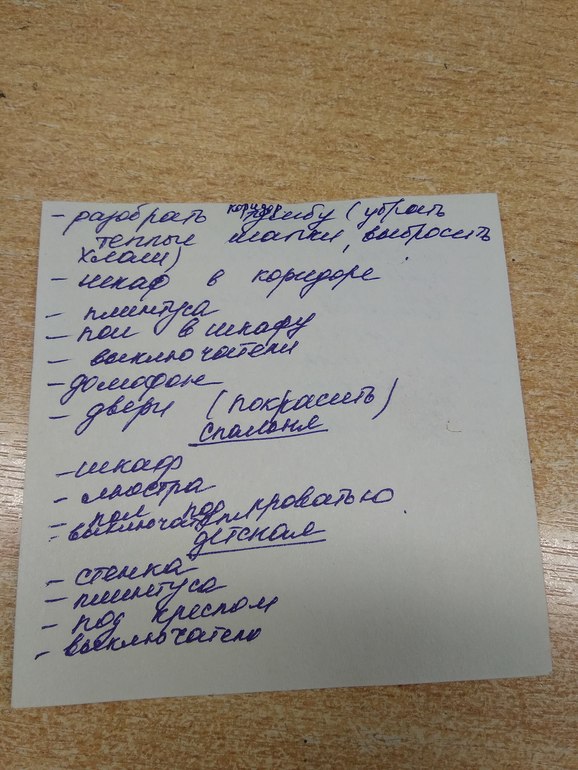 коридор
- разобрать тумбу (убрать
теплые шапки, выбросить
хлам)
- шкаф в коридоре
- плинтуса
- пол в шкафу
- выключатели
- домофон
- двери (покрасить)
спальня
- шкаф
- люстра
- пол под кроватью
- выключатели
детская
- стенка
- плинтуса
- под креслом
- выключатель